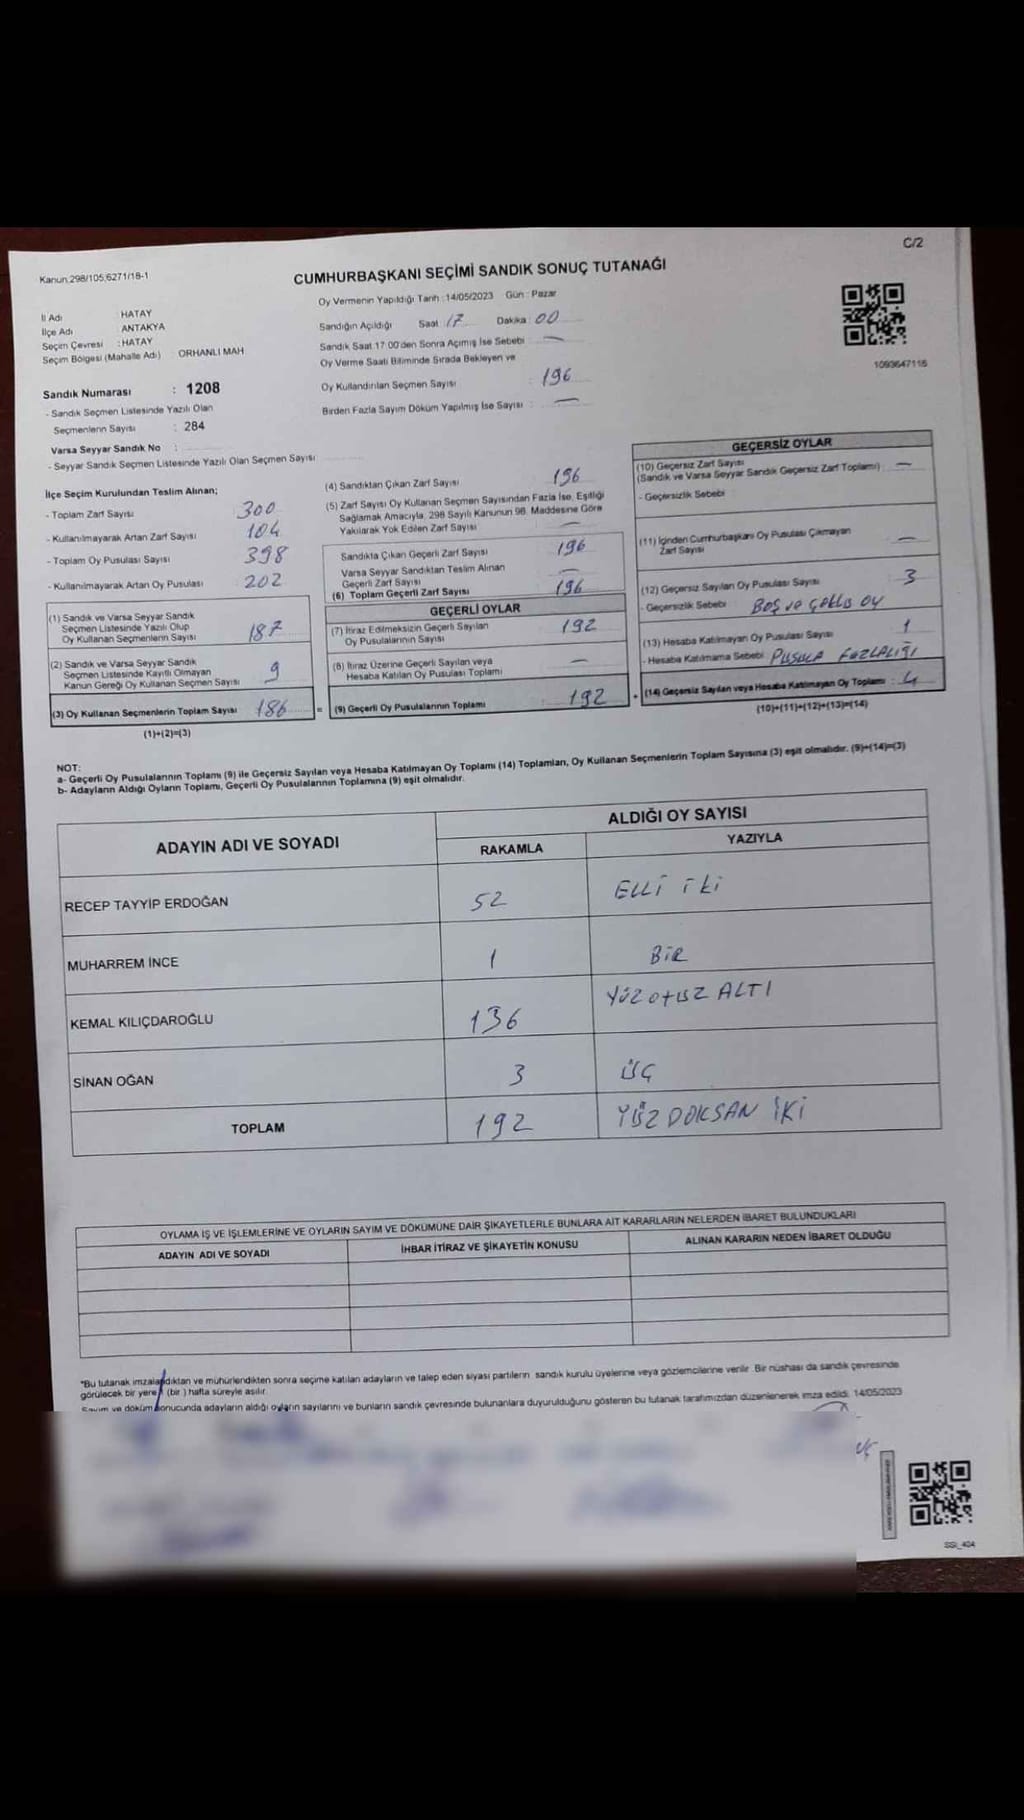 C/2
Kanun:298/105,6271/18-1
CUMHURBAŞKANI SEÇİMİ SANDIK SONUÇ TUTANAĞI
İl Adı : HATAY
İlçe Adı : ANTAKYA
Seçim Çevresi : HATAY
Seçim Bölgesi (Mahalle Adı) : ORHANLI MAH
Sandık Numarası : 1208
- Sandık Seçmen Listesinde Yazılı Olan
Seçmenlerin Sayısı : 284
Varsa Seyyar Sandık No :
- Seyyar Sandık Seçmen Listesinde Yazılı Olan Seçmen Sayısı
Oy Vermenin Yapıldığı Tarih : 14/05/2023 Gün : Pazar
Sandığın Açıldığı Saat 17 Dakika : 00
Sandık Saat 17:00'den Sonra Açımış İse Sebebi —
Oy Verme Saati Bitiminde Sırada Bekleyen ve
Oy Kullandırılan Seçmen Sayısı : 196
Birden Fazla Sayım Döküm Yapılmış İse Sayısı : —
1093647116
İlçe Seçim Kurulundan Teslim Alınan;
- Toplam Zarf Sayısı 300
- Kullanılmayarak Artan Zarf Sayısı 104
- Toplam Oy Pusulası Sayısı 398
- Kullanılmayarak Artan Oy Pusulası 202
(1) Sandık ve Varsa Seyyar Sandık
Seçmen Listesinde Yazılı Olup
Oy Kullanan Seçmenlerin Sayısı 187
(2) Sandık ve Varsa Seyyar Sandık
Seçmen Listesinde Kayıtlı Olmayan
Kanun Gereği Oy Kullanan Seçmen Sayısı 9
(3) Oy Kullanan Seçmenlerin Toplam Sayısı 186 =
(1)+(2)=(3)
(4) Sandıktan Çıkan Zarf Sayısı 196
(5) Zarf Sayısı Oy Kullanan Seçmen Sayısından Fazla İse, Eşitliği
Sağlamak Amacıyla, 298 Sayılı Kanunun 98. Maddesine Göre
Yakılarak Yok Edilen Zarf Sayısı —
Sandıkta Çıkan Geçerli Zarf Sayısı 196
Varsa Seyyar Sandıktan Teslim Alınan
Geçerli Zarf Sayısı —
(6) Toplam Geçerli Zarf Sayısı 196
GEÇERLİ OYLAR
(7) İtiraz Edilmeksizin Geçerli Sayılan
Oy Pusulalarının Sayısı 192
(8) İtiraz Üzerine Geçerli Sayılan veya
Hesaba Katılan Oy Pusulası Toplamı —
(9) Geçerli Oy Pusulalarının Toplamı 192 +
GEÇERSİZ OYLAR
(10) Geçersiz Zarf Sayısı
(Sandık ve Varsa Seyyar Sandık Geçersiz Zarf Toplamı) : —
- Geçersizlik Sebebi
(11) İçinden Cumhurbaşkanı Oy Pusulası Çıkmayan
Zarf Sayısı —
(12) Geçersiz Sayılan Oy Pusulası Sayısı 3
- Geçersizlik Sebebi BOŞ ve
(13) Hesaba Katılmayan Oy Pusulası Sayısı 1
- Hesaba Katılmama Sebebi PUSULA FAZLALIĞI
(14) Geçersiz Sayılan veya Hesaba Katılmayan Oy Toplamı : 4
(10)+(11)+(12)+(13)=(14)
NOT:
a- Geçerli Oy Pusulalarının Toplamı (9) ile Geçersiz Sayılan veya Hesaba Katılmayan Oy Toplamı (14) Toplamları, Oy Kullanan Seçmenlerin Toplam Sayısına (3) eşit olmalıdır. (9)+(14)=(3)
b- Adayların Aldığı Oyların Toplamı, Geçerli Oy Pusulalarının Toplamına (9) eşit olmalıdır.
ADAYIN ADI VE SOYADI
ALDIĞI OY SAYISI
RAKAMLA YAZIYLA
RECEP TAYYİP ERDOĞAN 52 ELLİ İKİ
MUHARREM İNCE 1 BİR
KEMAL KILIÇDAROĞLU 136 YÜZ OTUZ ALTI
SİNAN OĞAN 3 ÜÇ
TOPLAM 192 YÜZ DOKSAN İKİ
OYLAMA İŞ VE İŞLEMLERİNE VE OYLARIN SAYIM VE DÖKÜMÜNE DAİR ŞİKAYETLERLE BUNLARA AİT KARARLARIN NELERDEN İBARET BULUNDUKLARI
ADAYIN ADI VE SOYADI İHBAR İTİRAZ VE ŞİKAYETİN KONUSU ALINAN KARARIN NEDEN İBARET OLDUĞU
*Bu tutanak imzalandıktan ve mühürlendikten sonra seçime katılan adayların ve talep eden siyasi partilerin sandık kurulu üyelerine veya gözlemcilerine verilir. Bir nüshası da sandık çevresinde
görülecek bir yere 1 (bir ) hafta süreyle asılır.
Sayım ve döküm sonucunda adayların aldığı oyların sayılarını ve bunların sandık çevresinde bulunanlara duyurulduğunu gösteren bu tutanak tarafımızdan düzenlenerek imza edildi. 14/05/2023
SSI_404